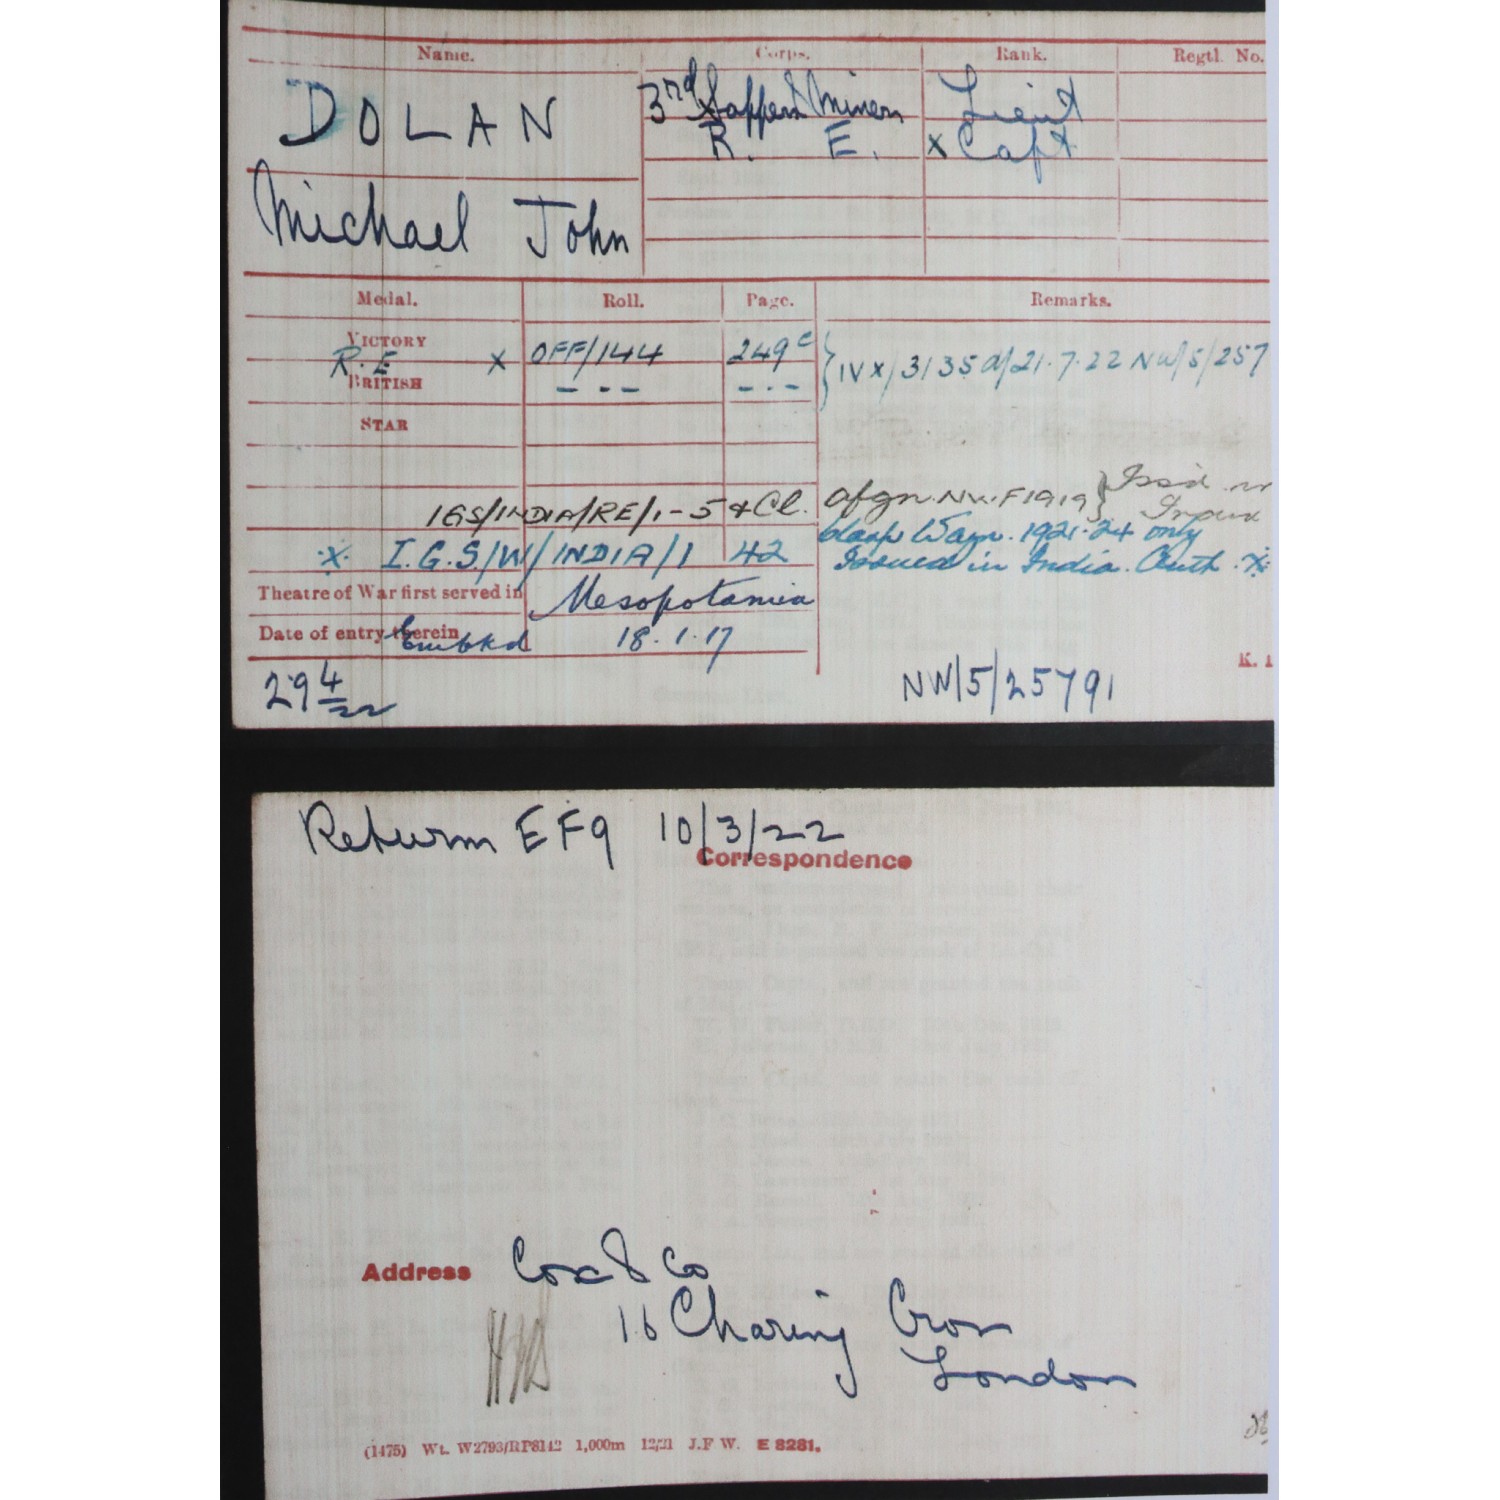 Name. Corps. Rank. Regtl. No.
DOLAN 3rd Sappers & Miners Lieut
R. E. x Capt
Michael John
Medal. Roll. Page. Remarks.
VICTORY
R.E x OFF/144 249c } IVX/3135 d/21.7.22 NW/5/257
BRITISH - - - - . -
STAR
IGS/INDIA/RE/1-5 & Cl. Afgn. N.W.F 1919 } Issd in
x I.G.S/W/INDIA/1 42 Clasp Wazn. 1921-24 only
Issued in India. Auth. x
Theatre of War first served in Mesopotamia
Date of entry therein Embkd 18.1.17
K. 1
29 4/22 NW/5/25791
Return EF9 10/3/22
Correspondence
Address Cox & Co
16 Charing Cross
London
(1475) Wt. W2793/RP8142 1,000m 12/21 J.F W. E 8281.